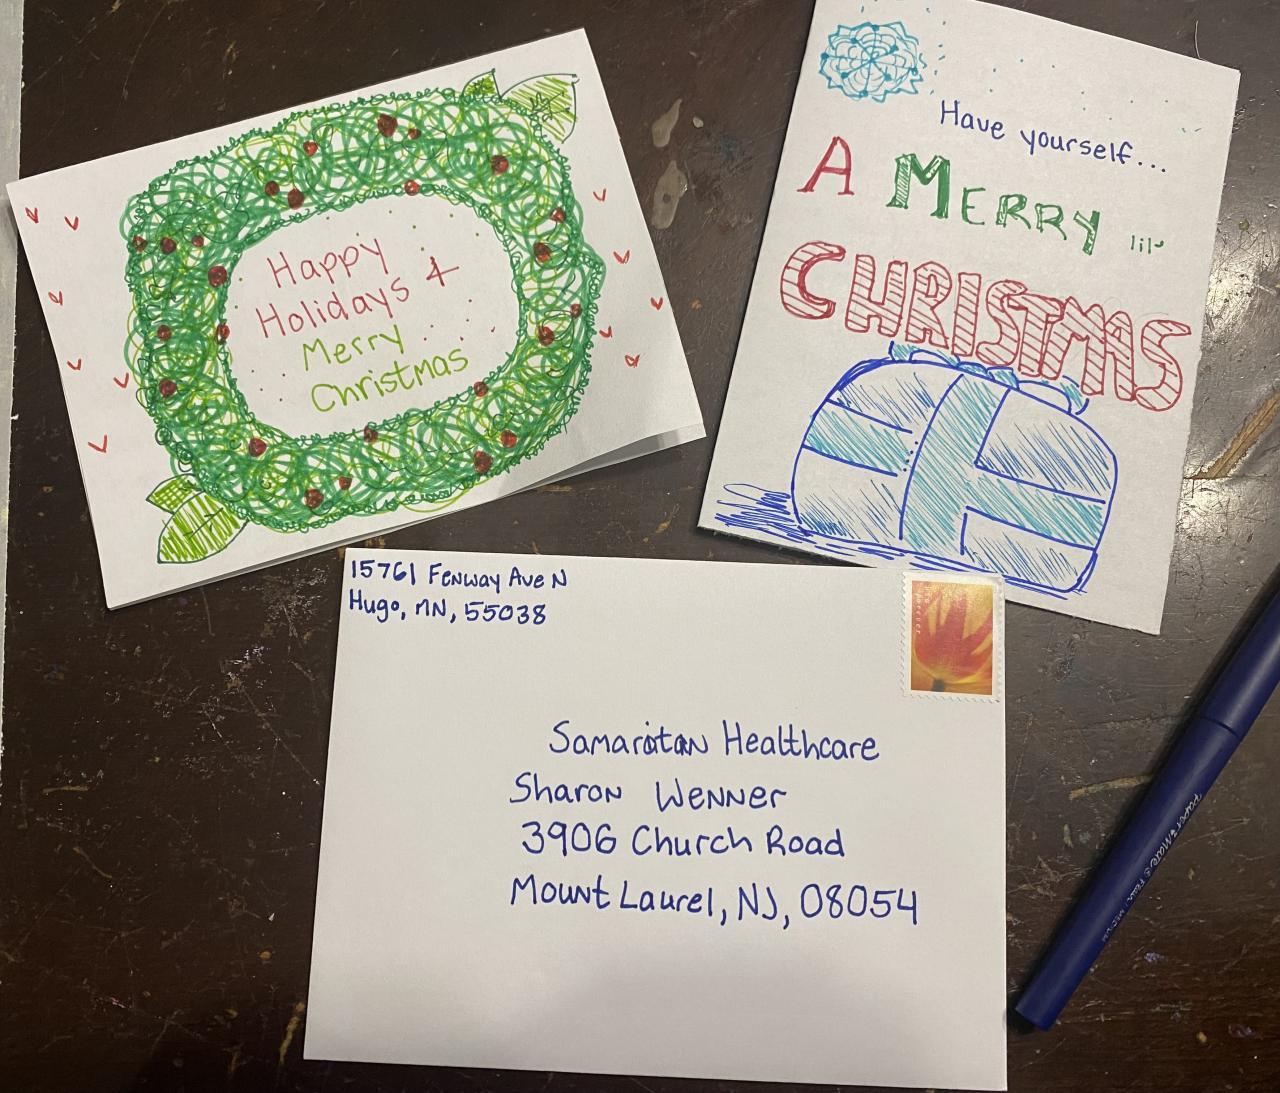 Happy
Holidays +
Merry
Christmas
Have yourself...
A MERRY lil'
CHRISTMAS
15761 Fenway Ave N
Hugo, MN, 55038
forever
Samaratan Healthcare
Sharon Wenner
3906 Church Road
Mount Laurel, NJ, 08054
paper:mate